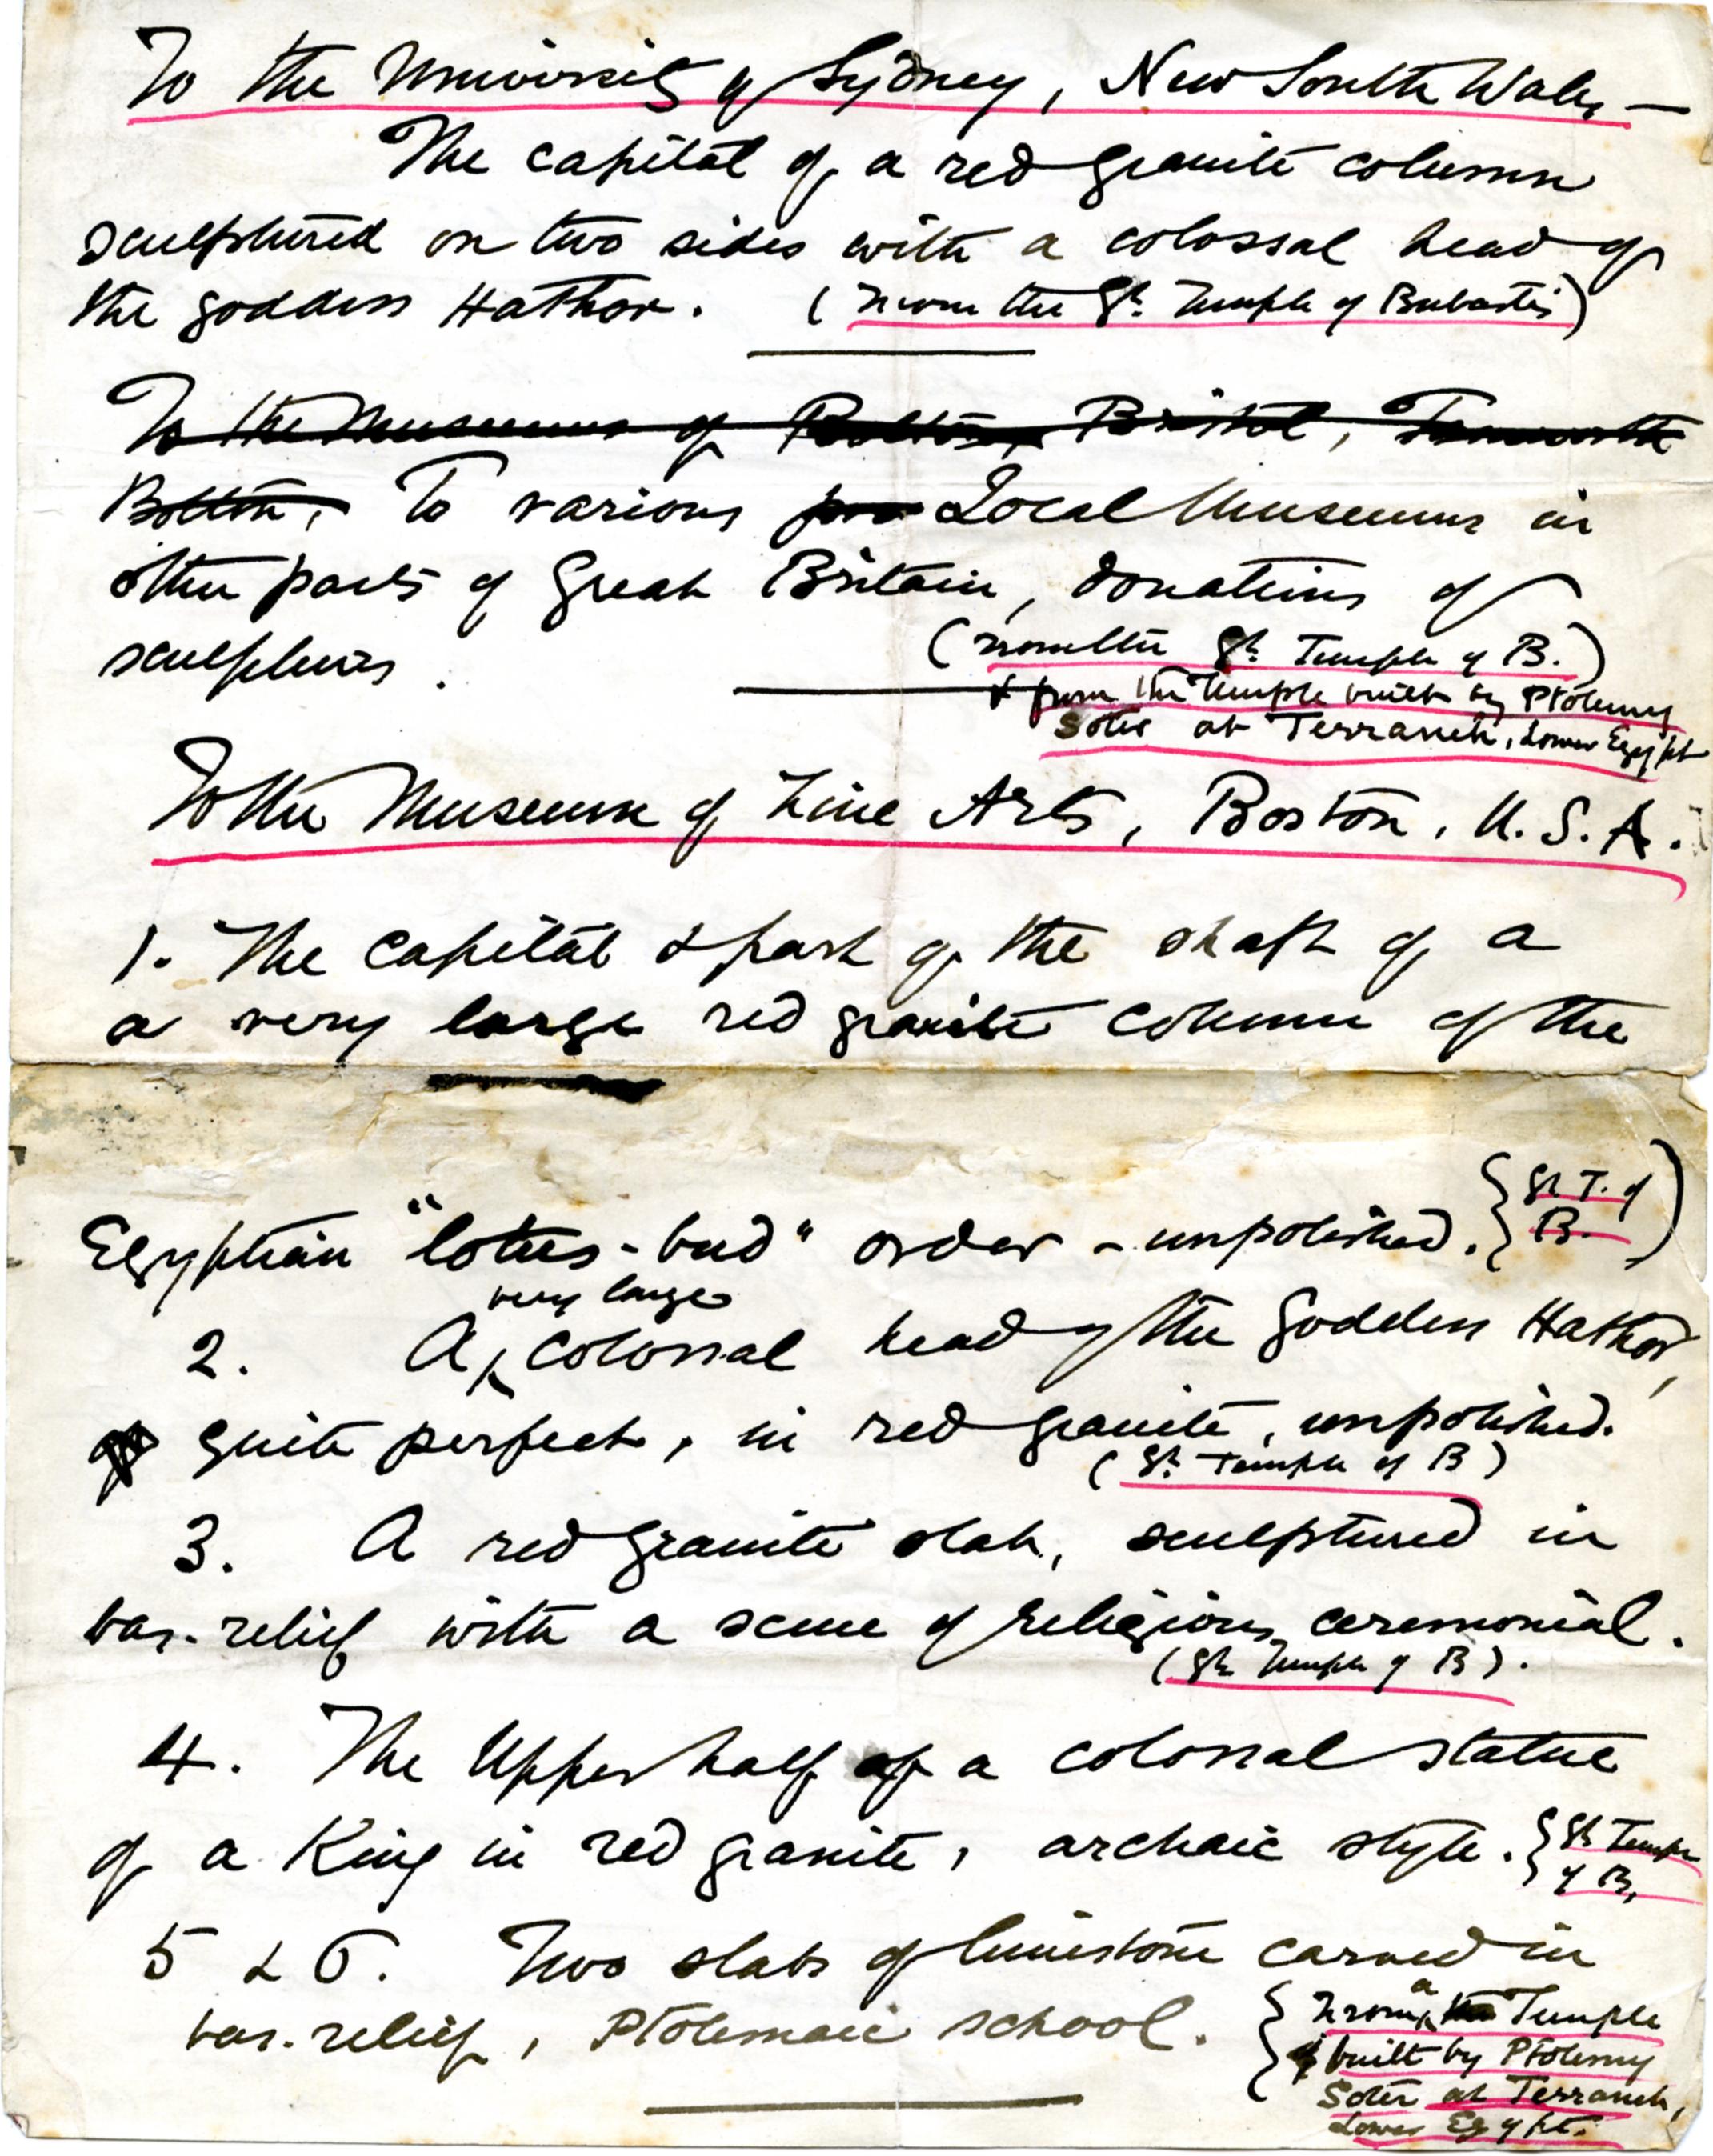 To the University of Sydney, New South Wales —
The capital of a red granite column
sculptured on two sides with a colossal head of
the goddess Hathor. (From the Gt. Temple of Bubastis)
To the Museums of Bolton, Bristol, Tamworth
Bolton, To various pro Local Museums in
other parts of Great Britain, donations of
sculptures.
(From the Gt. Temple of B.)
& from the Temple built by Ptolemy
Soter at Terraneh, Lower Egypt
To the Museum of Fine Arts, Boston, U.S.A.
1. The capital & part of the shaft of a
a very large red granite column of the
Egyptian "lotus-bud" order - unpolished. {Gt T. of
B.)
very large
2. A colossal head of the Goddess Hathor,
quite perfect, in red granite, unpolished.
(Gt. Temple of B)
3. A red granite slab, sculptured in
bas-relief with a scene of religious ceremonial.
(Gt Temple of B).
4. The Upper half of a colossal statue
of a King in red granite, archaic style. {Gt Temple
of B,
5 & 6. Two slabs of limestone carved in
bas-relief, Ptolemaic school.
{From a the Temple
built by Ptolemy
Soter at Terraneh,
Lower Egypt.